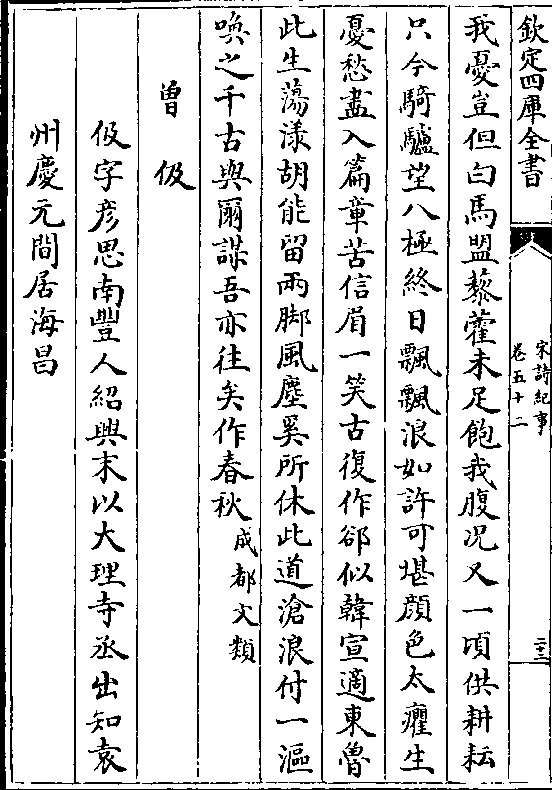 欽定四庫全書
宋詩紀事
卷五十二
二三
我憂豈但白馬盟藜藿未足飽我腹况又一頃供耕耘
只今騎驢望八極終日飄飄浪如許可堪顔色太癯生
憂愁盡入篇章苦信眉一笑古復作郤似韓宣適東魯
此生蕩漾胡能留兩脚風塵奚所休此道滄浪付一漚
喚之千古與爾謀吾亦往矣作春秋成都文類
曽伋
伋字彦思南豐人紹興末以大理寺丞出知袁
州慶元間居海昌